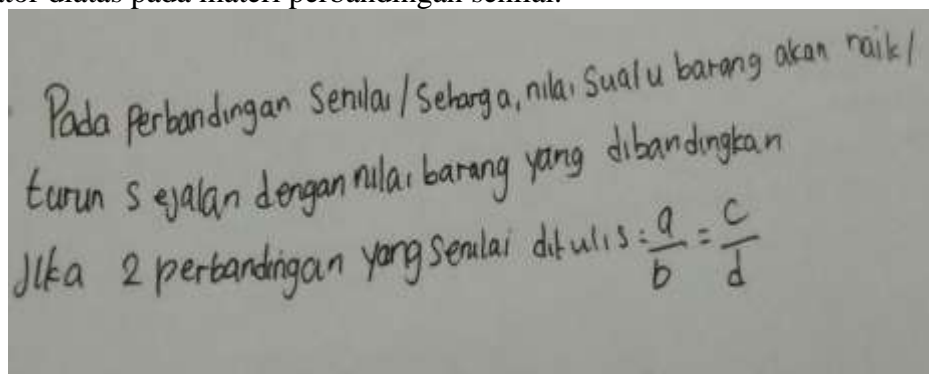 ator diatas pada materi perbandingan senilai.
Pada Perbandingan Senilai/Seharga, nilai Suatu barang akan naik/
turun sejalan dengan nilai barang yang dibandingkan
Jika 2 perbandingan yang Senilai ditulis: a/b = c/d